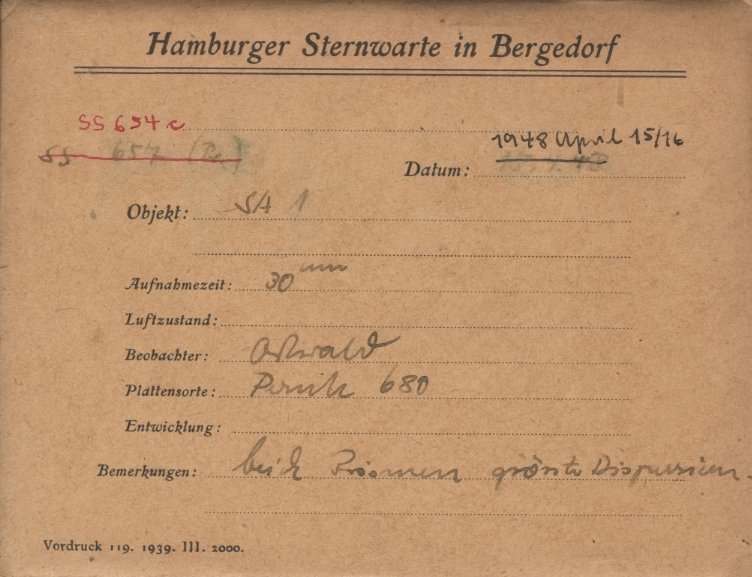 Hamburger Sternwarte in Bergedorf
SS 654 c
SS 657
1948 April 15/16
Datum:
Objekt: SA 1
Aufnahmezeit: 30 min
Luftzustand:
Beobachter: Ostwald
Plattensorte: 680
Entwicklung:
Bemerkungen: beide Prismen grösste Dispersion.
Vordruck 119. 1939. III. 2000.